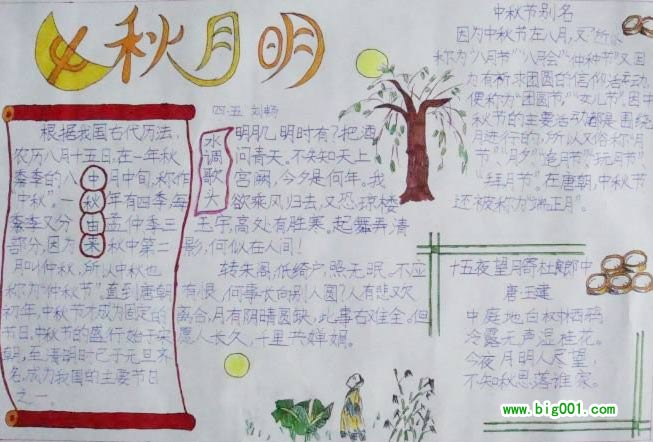 中秋月明
四.五 刘畅
根据我国古代历法,
农历八月十五日,在一年秋
季季的八月中旬,称作
"中秋"。一年有四季,每
季季又分孟仲季三
部分,因为秋中第二
月叫仲秋,所以中秋也
称为"仲秋节"。直到唐朝
初年,中秋节才成为固定的
节日。中秋节的盛行始于宋
朝,至清明时已于元旦齐
名,成为我国的主要节日
之一。
中秋由来
水调歌头
明月几明时有?把酒
问青天。不知天上
宫阙,今夕是何年。我
欲乘风归去,又恐琼楼
玉宇,高处有胜寒。起舞弄清
影,何似在人间!
转朱阁,低绮户,照无眠。不应
有恨,何事长向别人圆?人有悲欢
离合,月有阴晴圆缺,此事右难全。但
愿人长久,千里共婵娟。
中秋节别名
因为中秋节在八月,又所
称为"八月节""八月会""仲秋节"又因
力有祈求团圆的信仰活动,
便称为"团圆节""女儿节"。因中
秋节的主要活动都是围绕
月进行的,所以又俗称"月
节""月夕""追月节""玩月节"
"拜月节"。在唐朝,中秋节
还被称为"端正月"。
十五夜望月寄杜郎中
唐:王建
中庭地白树栖鸦
冷露无声湿桂花。
今夜月明人尽望,
不知秋思落谁家。
www.big001.com